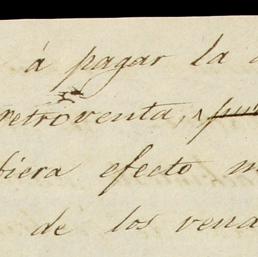 á pagar la
retroventa,
fiera efecto
de los vend